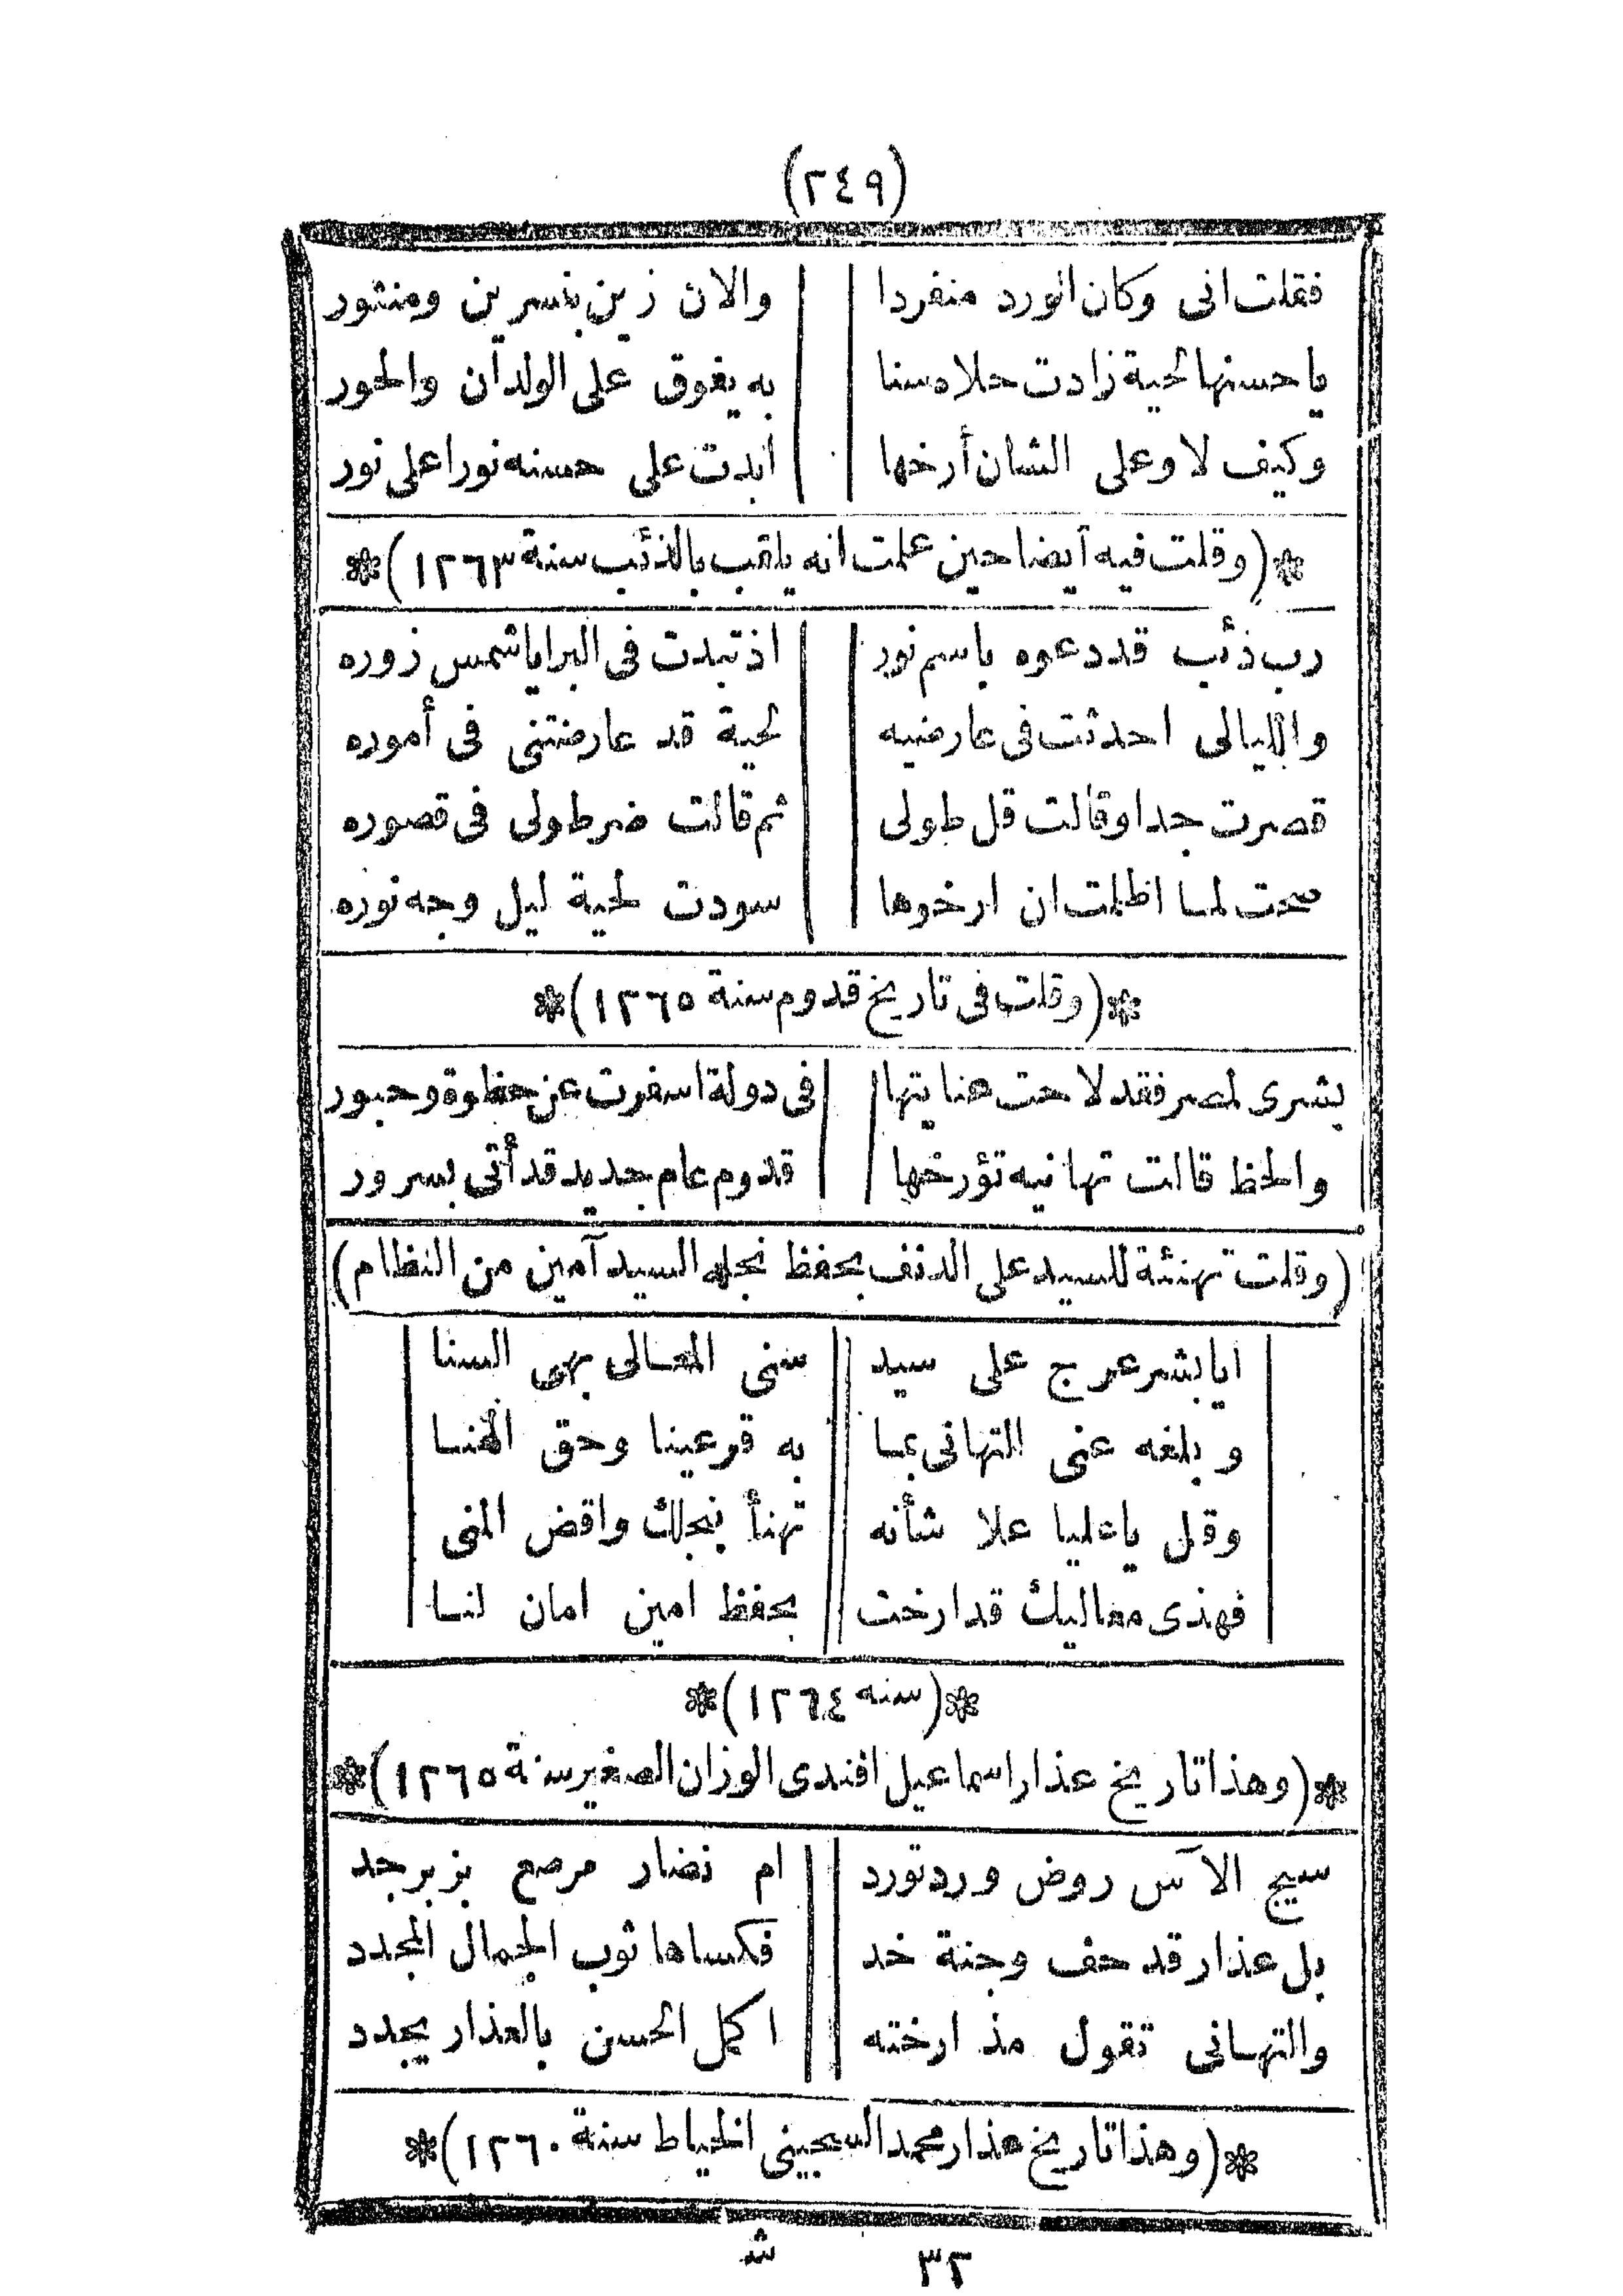 (٢٤٩)
فقلت انى وكان الورد منفردا والان زين بنسرين ومنثور
يا حسنها لحية زادت حلاه سنا به يفوق على الولدان والحور
وكيف لا وعلى الشان أرخها ابدت على حسنه نورا على نور
*(وقلت فيه أيضا حين علمت انه يلقب بالذئب سنة ١٢٦٣)*
رب ذئب قد دعوه باسم نور اذ تبدت فى البرايا شمس زوره
والليالى احدثت فى عارضيه لحية قد عارضتنى فى أموره
قصرت جدا وقالت قل طولى ثم قالت ضر طولى فى قصوره
صحت لما اظلمت ان ارخوها سودت لحية ليل وجه نوره
*(وقلت فى تاريخ قدوم سنة ١٢٦٥)*
بشرى لمصر فقد لاحت هنايتها فى دولة اسفرت عن حظوة وحبور
والحظ قالت تهانيه تؤرخها قدوم عام جديد قد أتى بسرور
(وقلت تهنئة للسيد على الدنف بحفظ نجله السيد آمين من النظام)
ايا بشر عرج على سيد سنى المعالى بهى السنا
وبلغه عنى التهانى بما به قر عينا وحق الهنا
وقل يا عليا علا شأنه تهنأ بنجلك واقض المنى
فهذى معاليك قد ارخت بحفظ امين امان لنا
*(سنه ١٢٦٤)*
*(وهذا تاريخ عذار اسماعيل افندى الوزان الصغير سنة ١٢٦٥)*
سيج الآس روض ورد تورد ام نضار مرصع بزبرجد
بل عذار قد حف وجنة خد فكساها ثوب الجمال المجدد
والتهانى تقول مذ ارخته اكمل الحسن بالعذار يجدد
*(وهذا تاريخ عذار محمد السجينى الخياط سنة ١٢٦٠)*
٣٢ ش